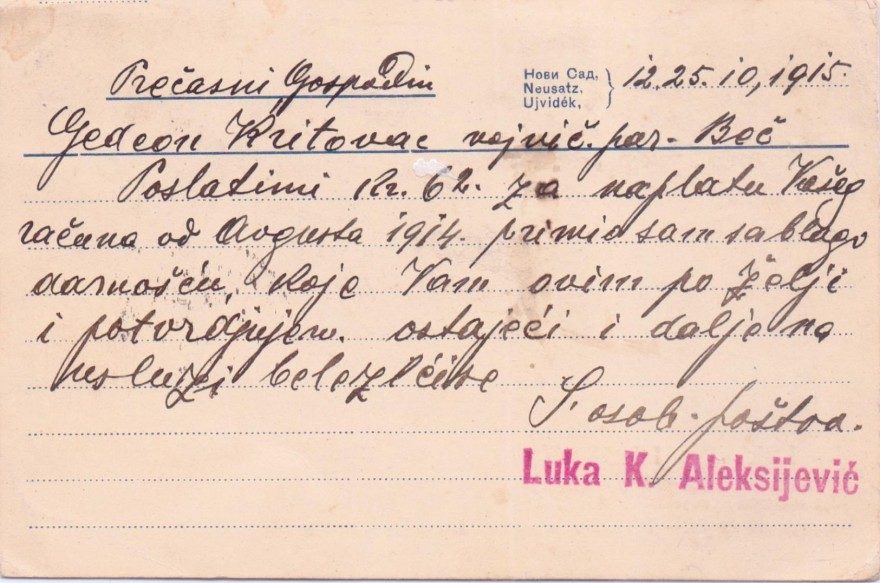 Prečasni Gospodin
Нови Сад,
Neusatz,
Ujvidék,
12. 25. 10, 1915.
Gedeon Kritovac vojnič. par. Beč
Poslatimi Kr. 62. za naplatu Vašeg
računa od Avgusta 1914. primio sam sa blago
darnošću, koje Vam ovim po želji
i potvrdjujem. ostajeći i dalje na
usluzi beležićise
S. osob. poštva.
Luka K. Aleksijević